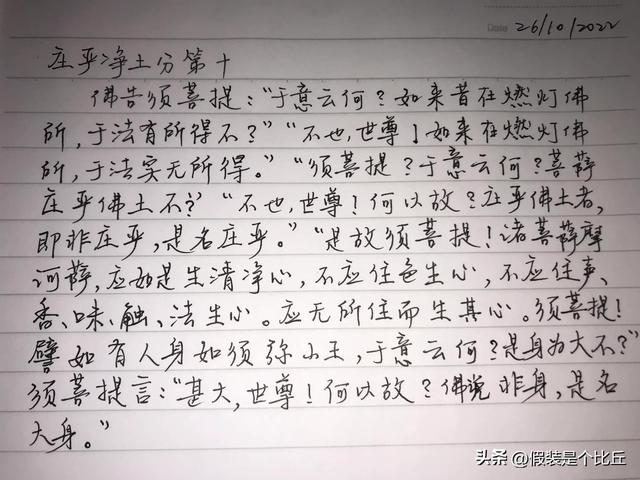 Date 26/10/2022
庄严净土分第十
佛告须菩提：“于意云何？如来昔在燃灯佛
所，于法有所得不？”“不也，世尊！如来在燃灯佛
所，于法实无所得。”“须菩提？于意云何？菩萨
庄严佛土不？”“不也，世尊！何以故？庄严佛土者，
即非庄严，是名庄严。”“是故须菩提！诸菩萨摩
诃萨，应如是生清净心，不应住色生心，不应住声、
香、味、触、法生心。应无所住而生其心。须菩提！
譬如有人身如须弥山王，于意云何？是身为大不？”
须菩提言：“甚大，世尊！何以故？佛说非身，是名
大身。”
头条 @假装是个比丘